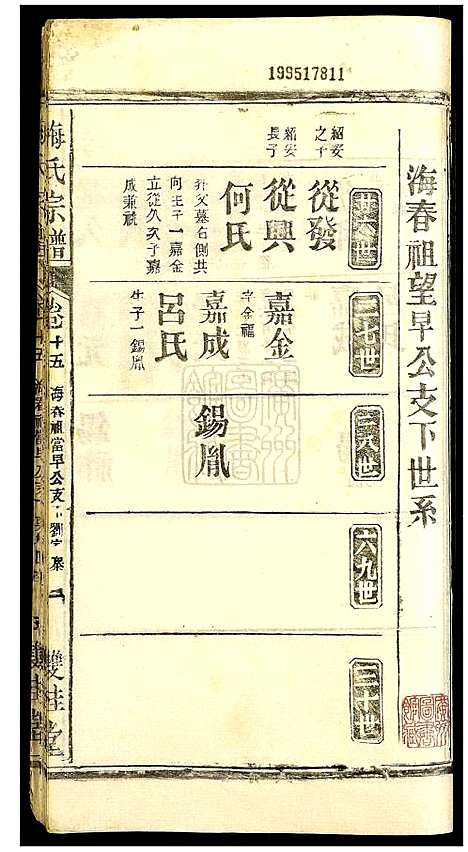 199517811
海春祖望早公支下世系
廿六世
紹安之子
從發
紹安長子
從興
何氏
廿父墓右側共
向生子一嘉金
立從久次子嘉
成兼祧
二七世
嘉金
字金福
嘉成
呂氏
生子一錫胤
二八世
錫胤
廣州圖書館
六九世
三十世
廣州圖書館藏
梅氏宗譜
卷十五
海春祖當早公支下
雙桂堂